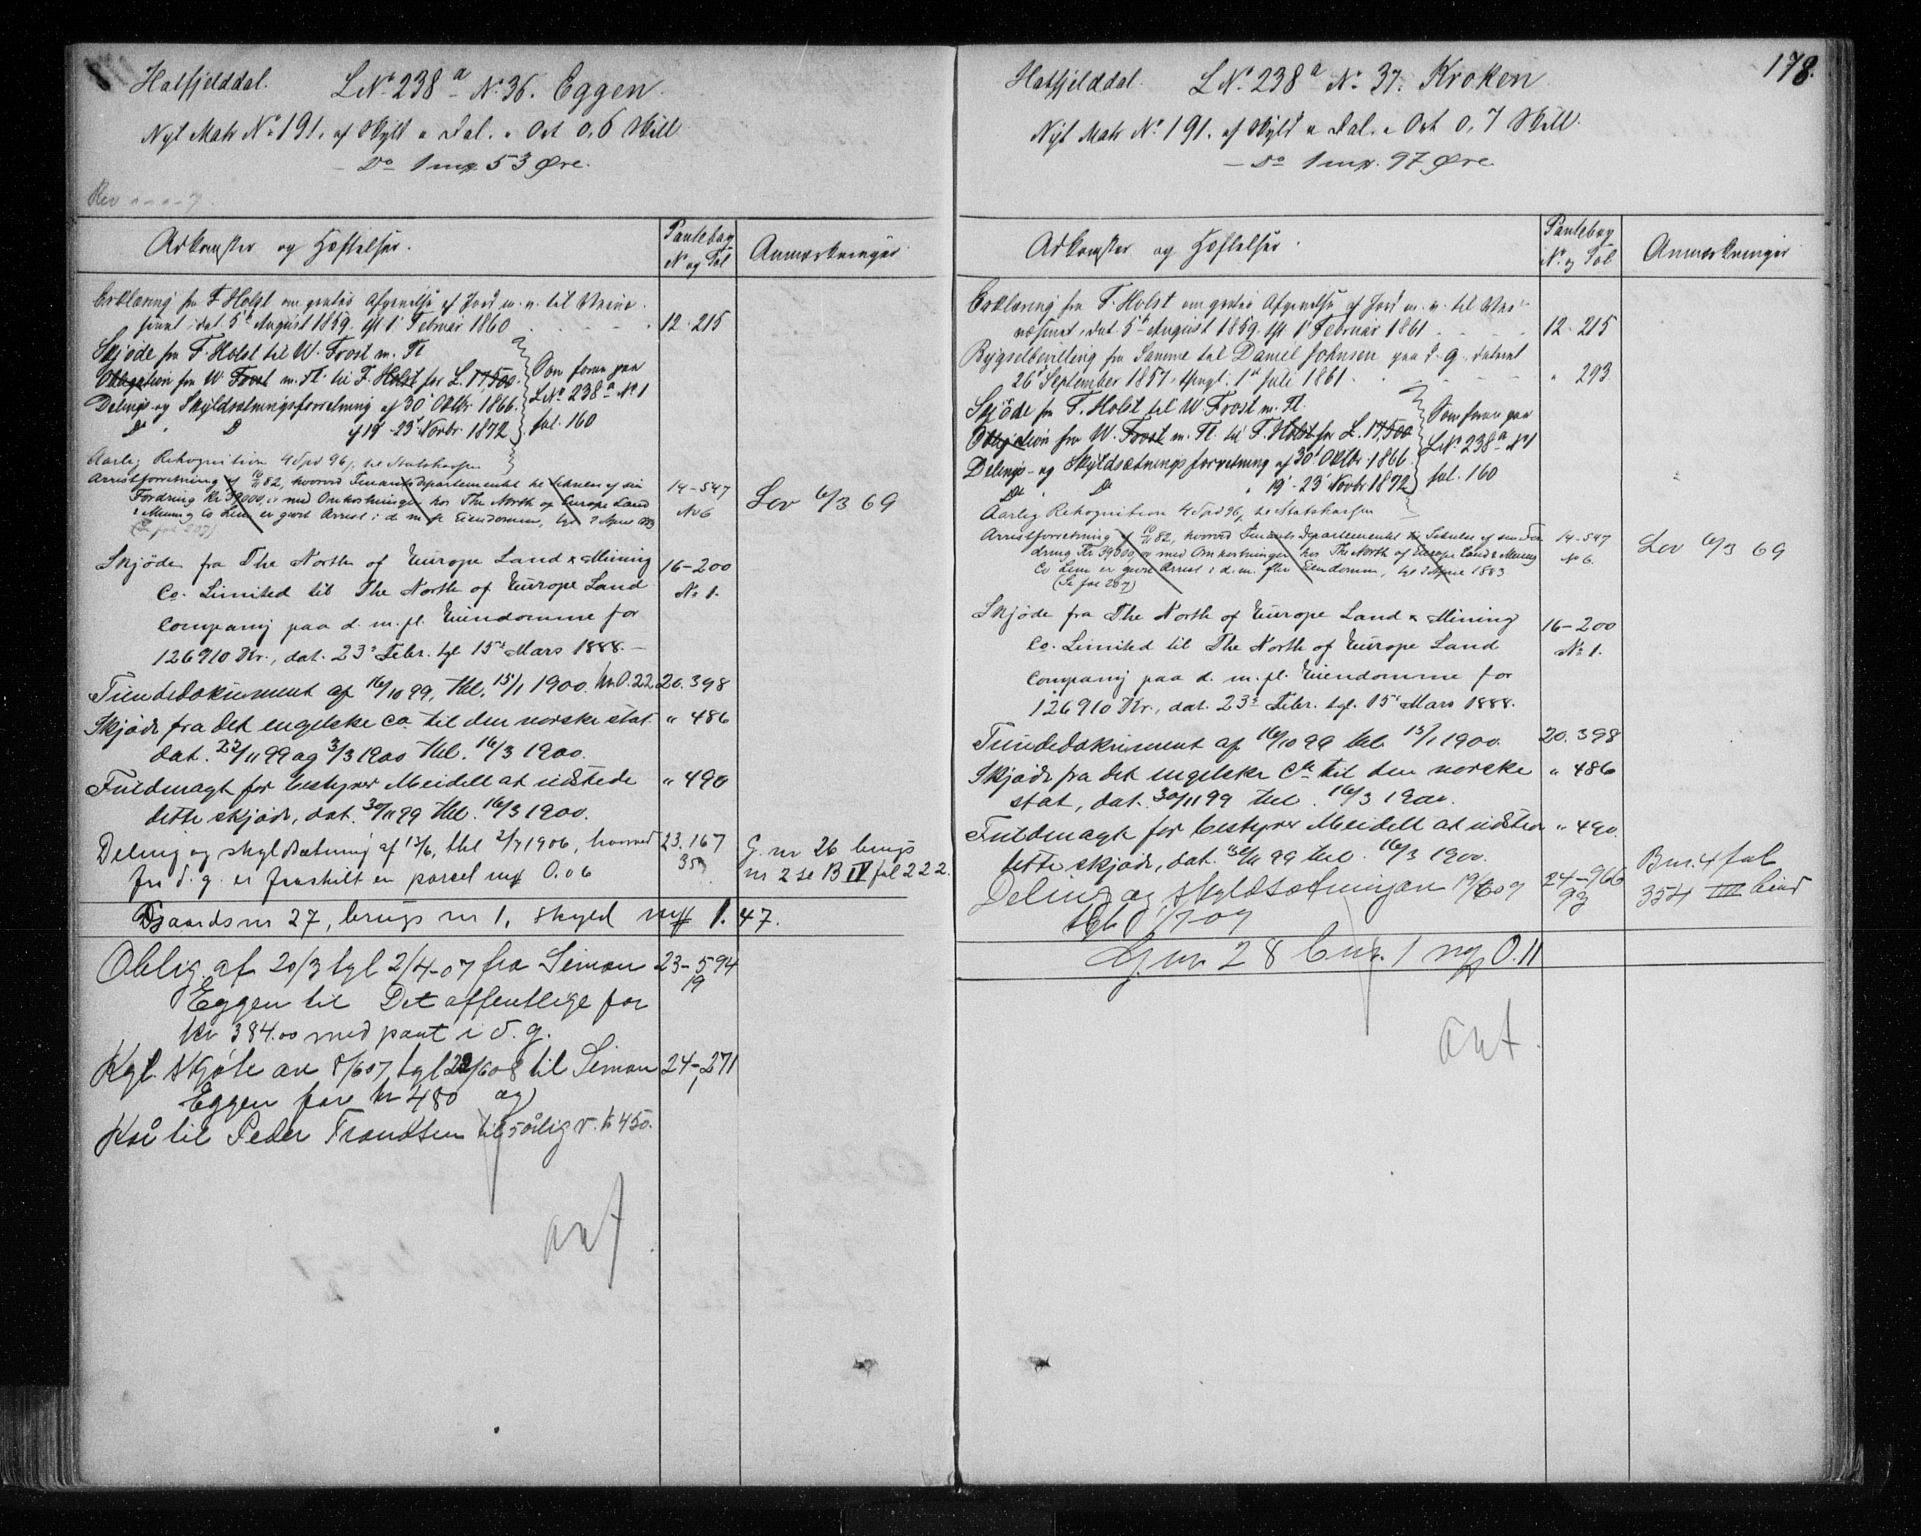 Hatfjelddal. LNº 238ª Nº 36. Eggen.
Nyt Matr Nº 191. af Skyld " Dal. " Ort 0,6 Skill
— Dº 1 mrk. 53 Øre.
Adkomster og Hæftelser.
Pantebog
Nº og Fol
Anmærkninger
Erklæring fra F. Holst om gratis Afgivelse af Jord m. v. til
dat 5te August 1859. tgl 1 Februar 1860
12. 215
Skjøde fra F. Holst til W. Frost m. Fl.
Obligation fra W. Frost m. Fl. til F. Holst for L. 17500.
Delings- og Skyldsætningsforretning af 30' Oktbr. 1866.
Dº " D af 19'-23' Novbr. 1872
Som foran paa
LNº 238ª Nº 1
fol. 160
Aarlig Rekognition 4 Spd 96 til Statskassen
Arrestforretning af 10/11 82, hvorved Finantsdepartementet til Sikkelse af sin
Fordring Kr 39000,00 med Omkostninger hos The North of Europe Land
& Mining Co Lim er gjort Arrest i d. m. fl. Eiendomme, tgl 2 April 1883
14-547
Nº 6
Lov 6/3 69
Skjøde fra The North of Europe Land & Mining
Co. Limited til The North of Europe Land
Company paa d. m. fl. Eiendomme for
126910 Kr., dat. 23' Febr. tgl 15de Mars 1888.—
16-200
Nº 1.
Tiendedokument af 16/10 99, thl. 15/1 1900. Kr 0.22
20. 398
Skjøde fra Det engelske Co. til den norske stat
dat. 22/11 99 og 3/3 1900 thl. 16/3 1900.
" 486
Fuldmagt for bestyrer Meidell at udstede
dette skjøde, dat. 30/11 99 thl. 16/3 1900.
" 490
Deling og skyldsætning af 13/6, thl 2/7 1906, hvorved
fra d. g. er fraskilt en parcel mrk 0.06
23. 167
35
G. nr 26 brugs
nr 2 se B IV fol 222.
Gaardsnr 27, brugs nr 1, skyld mrk 1.47.
Oblig. af 20/3 tgl 2/4-07 fra Simon
Eggen til Det offentlige for
kr 384.00 med pant i d. g.
23-594
19
Kgl. skjøte av 8/6 07 tgl 22/6 08 til Simon
Eggen for kr 480 og
24-271
Kår til Peder Trondsen til 5 årlig v. kr 450.
ort
178.
Hatfjelddal. LNº 238ª Nº 37. Kroken
Nyt Matr Nº 191. af Skyld " Dal. " Ort 0,7 Skill.
— Dº 1 mrk. 97 Øre.
Adkomster og Hæftelser.
Pantebog
Nº og Fol
Anmærkninger
Erklæring fra F. Holst om gratis Afgivelse af Jord m. v. til
dat 5te August 1859. tgl 1' Februar 1861
12. 215
Bygselbevilling fra Samme til Daniel Johnsen paa d. g. dateret
26' September 1857. tingl. 1ste Juli 1861.
" 293
Skjøde fra F. Holst til W. Frost m. Fl.
Obligation fra W. Frost m. Fl. til F. Holst for L. 17500
Delings- og Skyldsætningsforretning af 30' Oktbr. 1866.
Dº " Dº " 19'-23' Novbr 1872
Som foran paa
LNº 238ª Nº 1
fol. 160
Aarlig Rekognition 4 Spd 96 til Statskassen
Arrestforretning af 10/11 82, hvorved Finants Departementet til Sikkelse af sin For
dring Kr. 39000,00 med Omkostninger hos The North of Europe Land & Mining
Co Lim er gjort Arrest i d. m. flere Eiendomme, tgl 2 April 1883
(Se fol 207)
14-547
Nº 6.
Lov 6/3 69
Skjøde fra The North of Europe Land & Mining
Co. Limited til The North of Europe Land
Company paa d. m. fl. Eiendomme for
126910 Kr., dat. 23' Febr. tgl. 15de Mars 1888.
16-200
Nº 1.
Tiendedokument af 16/10 99 thl. 15/1 1900.
20. 398
Skjøde fra det engelske Co. til den norske
stat, dat. 30/11 99 thl. 16/3 1900.
" 486
Fuldmagt for bestyrer Meidell at udstede
dette skjøde, dat. 30/11 99 thl. 16/3 1900.
" 490.
Deling og skyldsætningen 19/6 07
tgl. 1/7-07
24-966
93
Bnr. 4 fol
354 VIII bind
Gnr. 28 bnr. 1 mrk 0.11
ort.